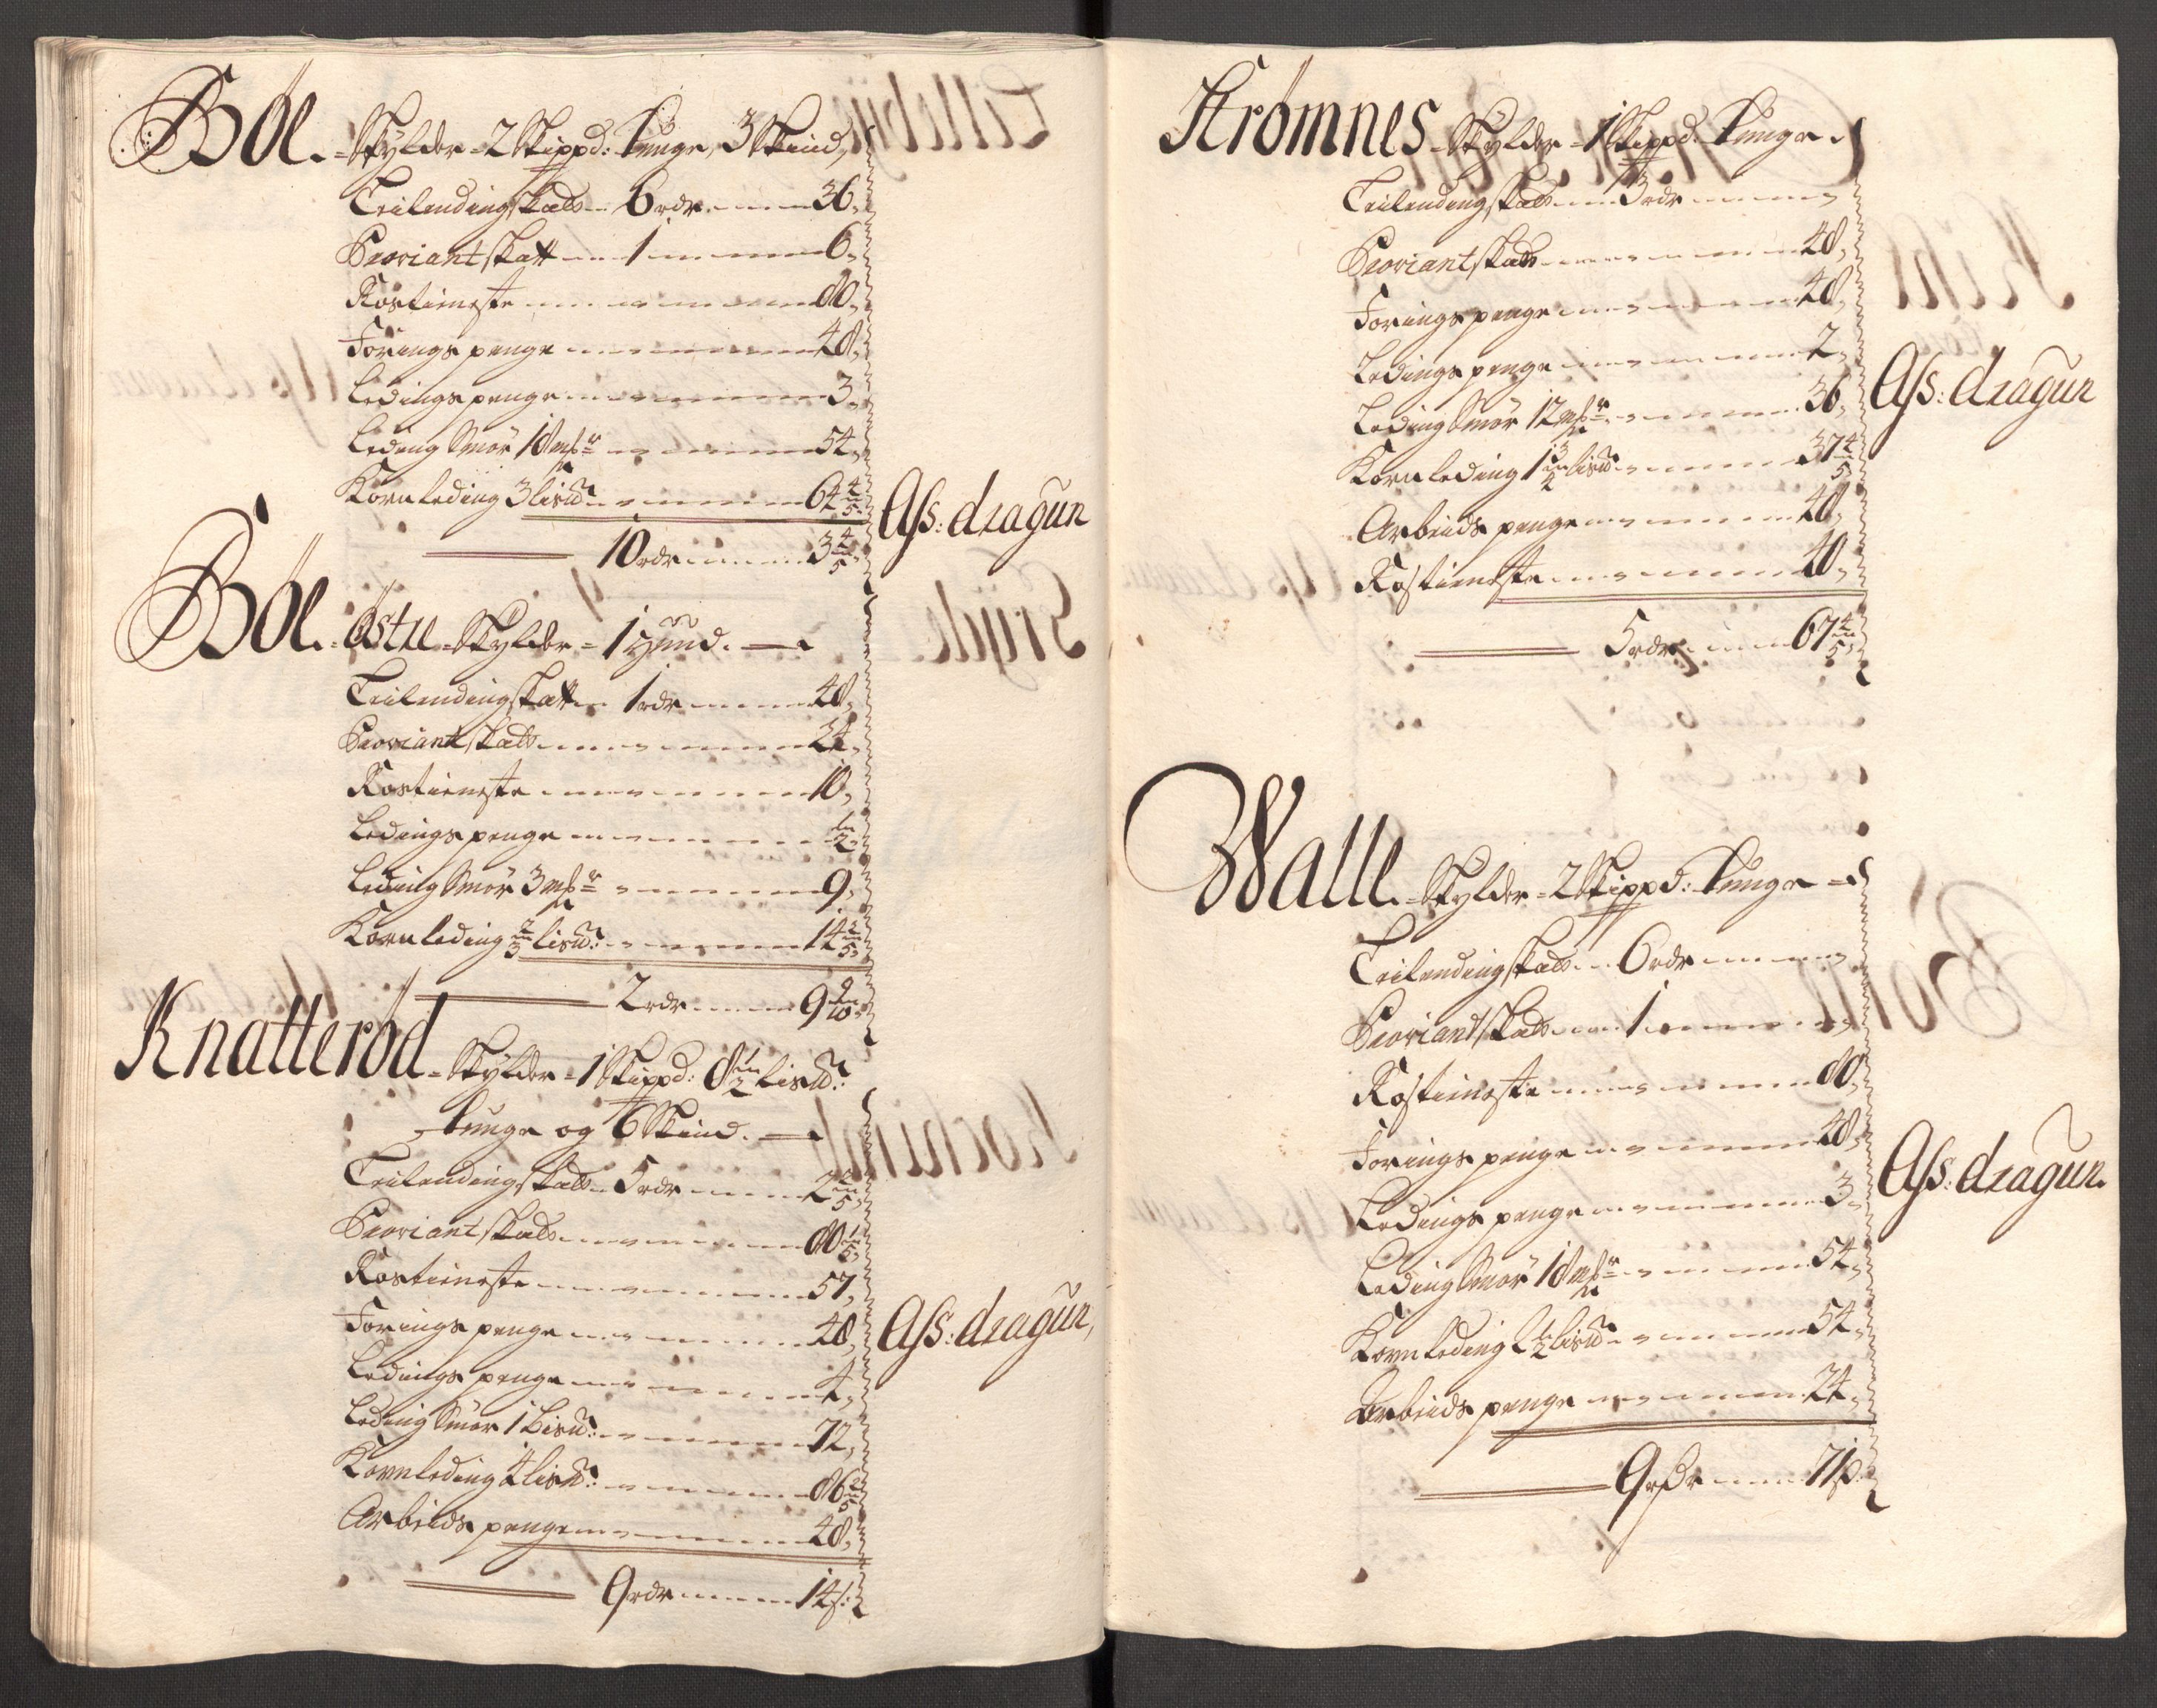 Bøl. Skylder - 2 Skippd: Tunge, 3 Skind,
Leilendingskatt - 6 rdr - 36,
Proviantskatt - 1 - 6,
Rostieneste - 80,
Forings penge - 48,
Ledings penge - 3,
Leding Smör 18 mkr - 54,
Kornleding 3 lispd: - 64 4/5,
10 rdr - 3 4/5,
Ass: dragun
Bøl. östre - Skylder - 1 Hund.
Leilendingskatt - 1 rdr - 48,
Proviantskatt - 24,
Rostieneste - 10,
Ledings penge - 1/2,
Leding Smör 3 mkr - 9,
Kornleding 2/3 lispd: - 14 2/5,
2 rdr - 9 9/10,
Knatterød - Skylder - 1 Skippd: 8 1/2 lispd:
Tunge og 6 Skind.
Leilendingskatt - 5 rdr - 2 2/5,
Proviantskatt - 80 1/5,
Rostieneste - 57,
Forings penge - 48,
Ledings penge - 4,
Leding Smör 1 Lispd: - 72,
Kornleding 4 lispd: - 86 2/5,
Arbeids penge - 48,
9 rdr - 14 s:
Ass: dragun,
Strømnes - Skylder - 1 Skippd: Tunge.
Leilendingskatt - 3 rdr
Proviantskatt - 48,
Forings penge - 48,
Ledings penge - 2,
Leding Smör 12 mkr - 36,
Kornleding 1 3/4 lispd - 37 4/5,
Arbeids penge - 48,
Rostieneste - 40,
5 rdr - 67 4/5,
Ass: dragun
Walle. - Skylder - 2 Skippd: Tunge
Leilendingskatt - 6 rdr
Proviantskatt - 1
Rostieneste - 80,
Forings penge - 48,
Ledings penge - 3,
Leding Smör 18 mkr - 54,
Kornleding 2 1/2 lispd - 54,
Arbeids penge - 24,
9 rdr - 71 s.
Ass: dragun.